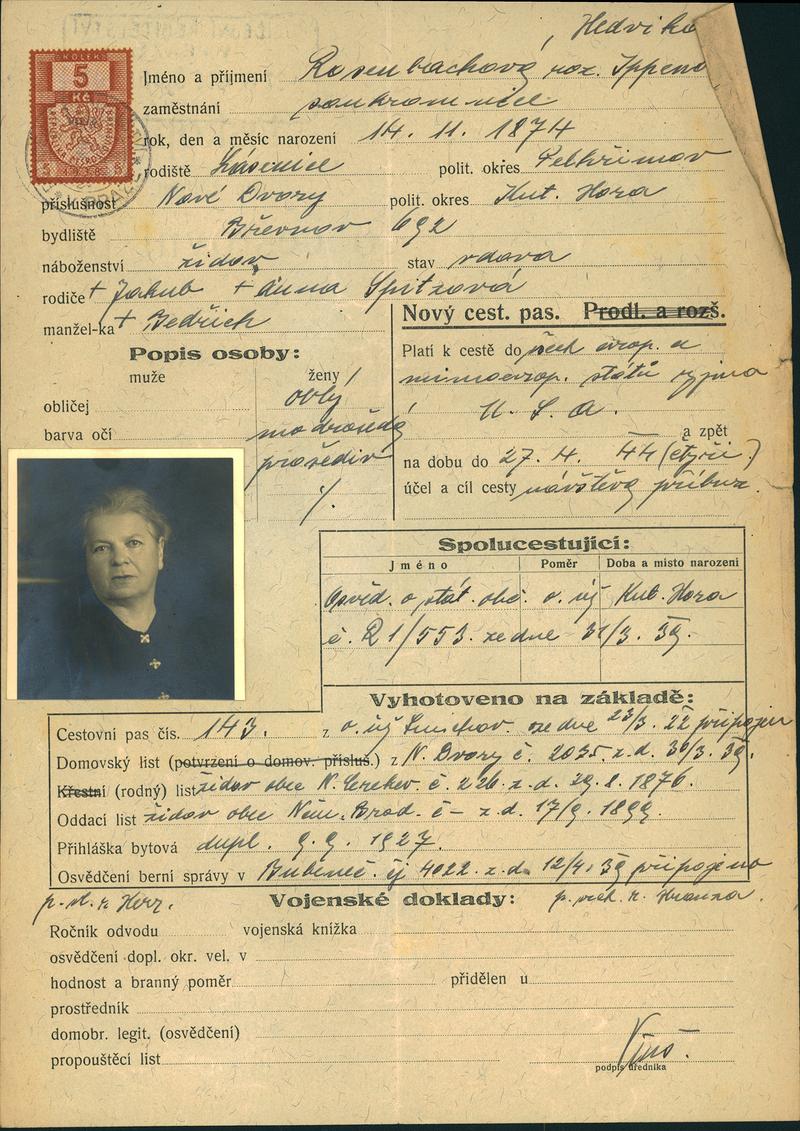 KOLEK
5
Kč
, Hedvika
Jméno a příjmení Rosenbachová roz. Ippenová
zaměstnání soukromnice
rok, den a měsíc narození 14. 11. 1874
rodiště polit. okres Pelhřimov
příslušnost Nové Dvory polit. okres Kut. Hora
bydliště Břevnov 692
náboženství židov. stav vdova
rodiče + Jakub + Anna Spitzová
manžel-ka + Bedřich
Nový cest. pas. Prodl. a rozš.
Popis osoby:
Platí k cestě do všech evrop. a
muže ženy
mimoevrop. států vyjma
obličej oblý
U. S. A.
barva očí modrošedá
a zpět
prošediv
na dobu do 27. 4. 44 (čtyři)
účel a cíl cesty návštěva příbuz.
%.
Spolucestující:
Jméno Poměr Doba a místo narození
Osvěd. o stát. obč. o. úř Kut. Hora
č. R 1/553 ze dne 31/3. 39.
Vyhotoveno na základě:
Cestovní pas čís. 143. z o. úř Smíchov. ze dne 23/3. 22 připojen
Domovský list (potvrzení o domov. přísluš.) z N. Dvory č. 2035. z. d. 30/3. 39.
Křestní (rodný) list židov obce N. Cerekev. č. 226. z. d. 29. 8. 1876.
Oddací list židov obce Něm. Brod. č – z. d. 17/9. 1899.
Přihláška bytová dupl. 9. 9. 1927.
Osvědčení berní správy v Bubeneč. čj 4022. z. d. 12/4. 39 připojeno
Vojenské doklady:
Ročník odvodu vojenská knížka
osvědčení dopl. okr. vel. v
hodnost a branný poměr přidělen u
prostředník
domobr. legit. (osvědčení)
propouštěcí list
podpis úředníka